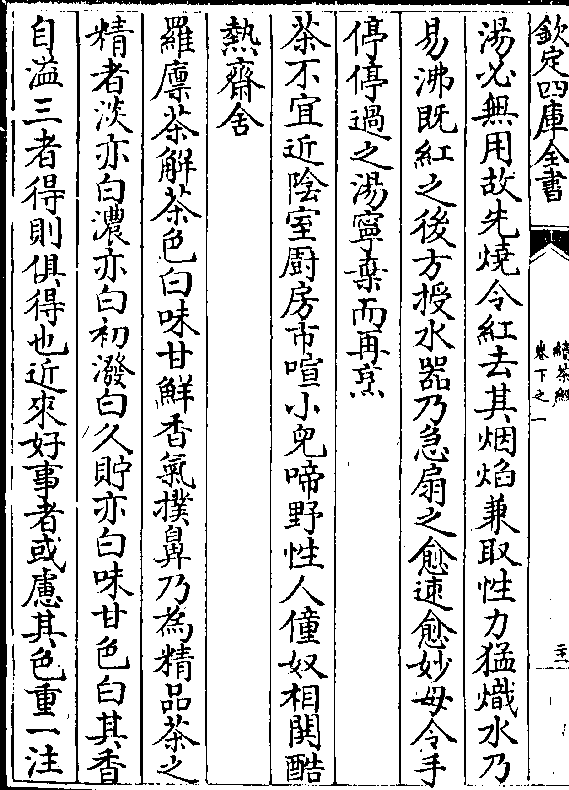 欽定四庫全書
續茶經
卷下之一
湯必無用故先燒令紅去其烟焰兼取性力猛熾水乃
易沸既紅之後方授水器乃急扇之愈速愈妙毋令手
停停過之湯寧棄而再烹
茶不宜近陰室廚房市喧小兒啼野性人僮奴相鬨酷
熱齋舍
羅廪茶解茶色白味甘鮮香氣撲鼻乃為精品茶之
精者淡亦白濃亦白初潑白久貯亦白味甘色白其香
自溢三者得則俱得也近來好事者或慮其色重一注